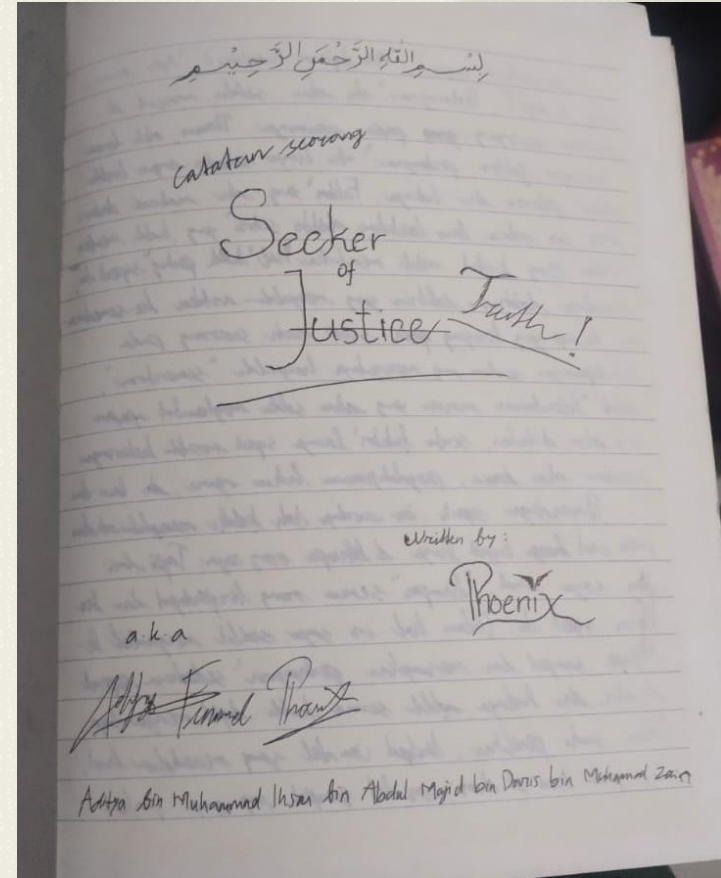 بِسْمِ اللهِ الرَّحْمَنِ الرَّحِيْمِ
catatan seorang
Seeker
of
Justice Truth!
written by:
Phoenix
a.k.a
Aditya Phoenix
Aditya bin Muhammad Ihsan bin Abdul Majid bin Darris bin Muhammad Zain